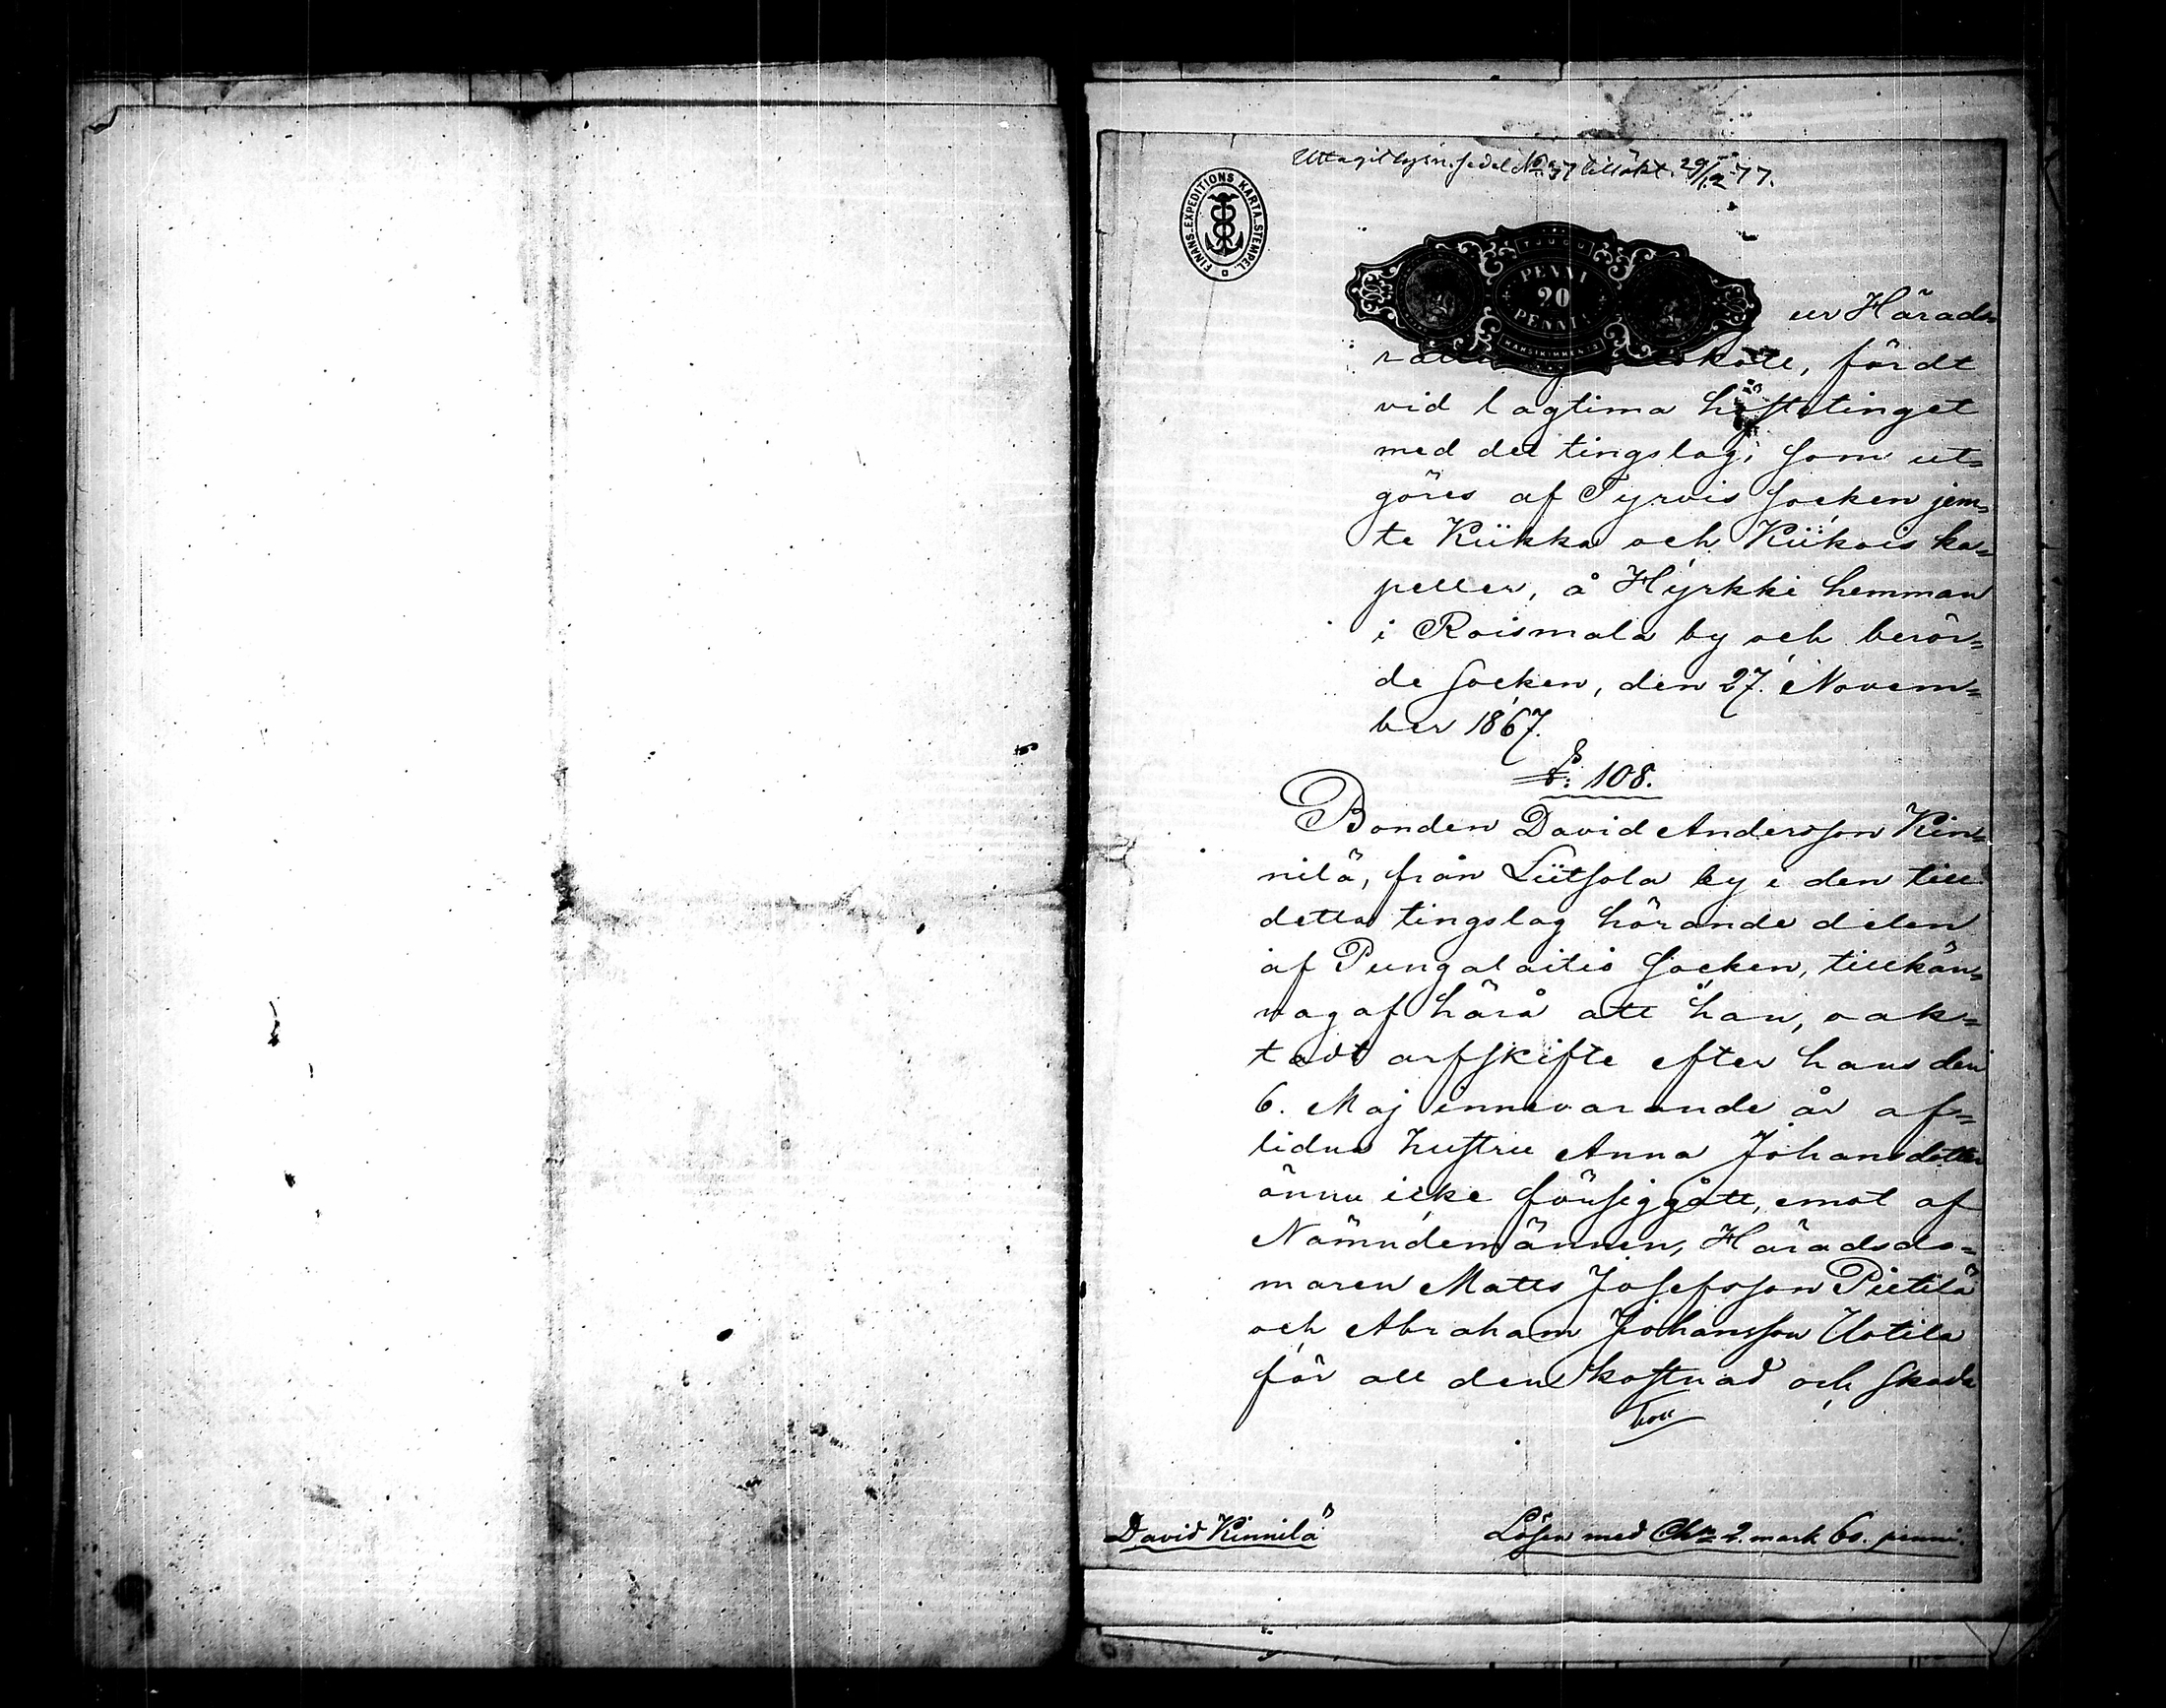 Uttagit lysn. sedel No 37 till ökt. 29/12 77.
FINANS-EXPEDITIONS KARTA.STEMPEL.
TJUGU
PENNI
20
PENNIÄ
KAKSIKYMMENTÄ
ur Härads-
rätte skole, fördt
vid lagtima höstetinget
med det tingslag, som ut-
göres af Tyrvis socken jem-
te Kiikka och Kiikois ka-
peller, å Hyrkki hemman
i Roismala by och berör-
de socken, den 27. Novem-
ber 1867.
§: 108.
Bonden David Andersson Kin-
nilä, från Liitsola by i den till
detta tingslag hörande delen
af Pungalaitio socken, tillkän-
nagaf härå att han, oak-
tadt arfskifte efter hans den
6. Maj innevarande år af-
lidna hustru Anna Johansdotter
ännu icke försiggått, emot af
Nämndemännen, Häradsdo-
maren Matts Josefsson Pietilä
och Abraham Johansson Uotila
för all den kostnad och skada
hvu
David Kinnilä
Lösen med Cha 2. mark 60. penni.